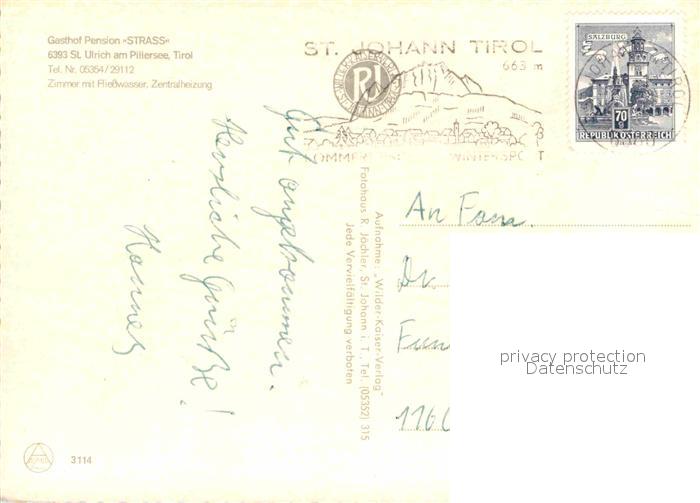 Gasthof Pension »STRASS«
6393 St. Ulrich am Pillersee, Tirol
Tel. Nr. 05354/29112
Zimmer mit Fließwasser, Zentralheizung
ST. JOHANN TIROL
663 m
WINTERSPORT
SALZBURG
70
REPUBLIK ÖSTERREICH
Gut angekommen.
Herzliche Grüße!
Hannes
Aufnahme: „Wilder-Kaiser-Verlag"
Fotohaus R. Jöchler, St. Johann i. T., Tel. (05352) 315
Jede Vervielfältigung verboten
An Fam.
Dr
1160
privacy protection
Datenschutz
3114